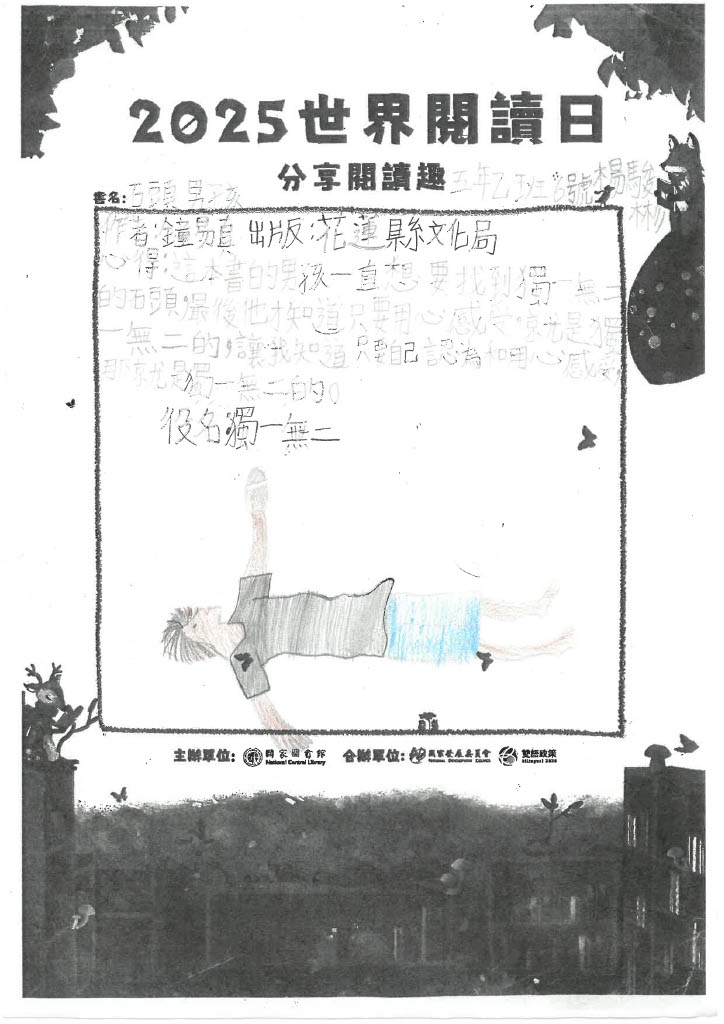 2025世界閱讀日
分享閱讀趣
五年乙班6號楊駿
彬
書名:石頭男孩
作者:鐘易真 出版:花蓮縣文化局
心得:這本書的男孩一直想要找到獨一無二
的石頭,最後他才知道只要用心感受,就是獨
一無二的,讓我知道只要自己認為和用心感受
那就是獨一無二的。
役名獨一無二
主辦單位: 國家圖書館 National Central Library 合辦單位: 國家發展委員會 NATIONAL DEVELOPMENT COUNCIL 雙語政策 Bilingual 2030